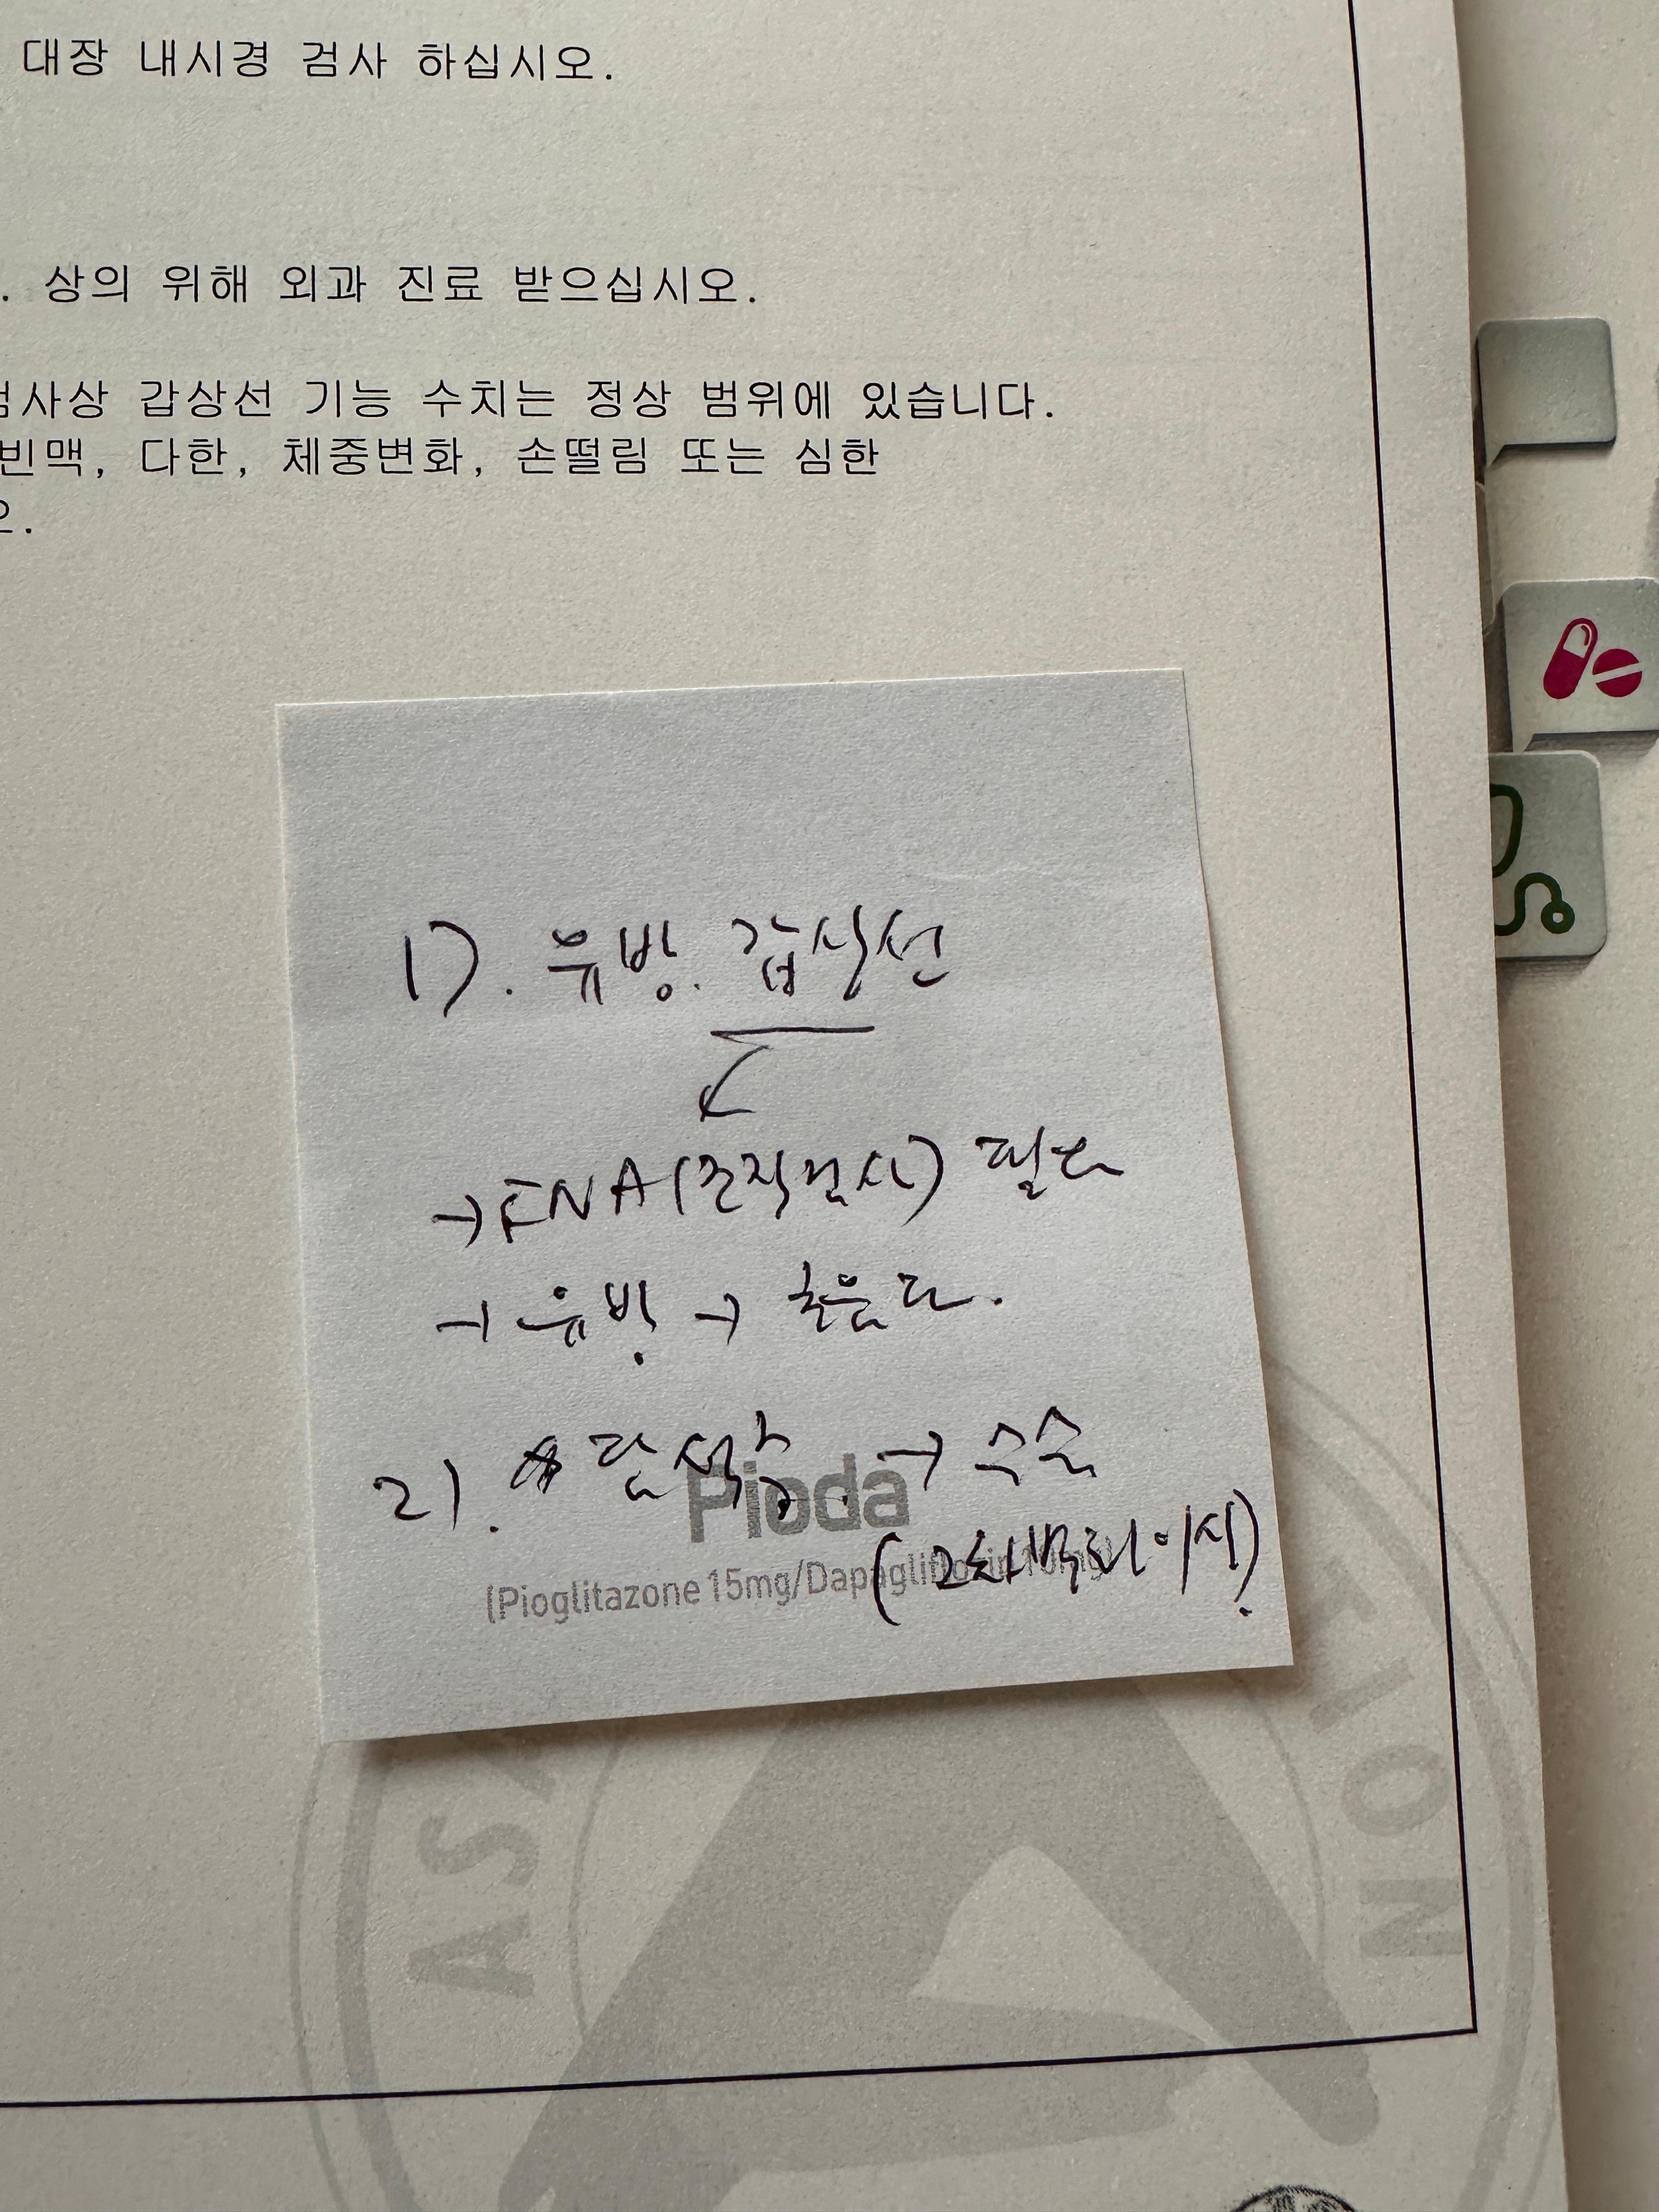 대장 내시경 검사 하십시오.
. 상의 위해 외과 진료 받으십시오.
검사상 갑상선 기능 수치는 정상 범위에 있습니다.
빈맥, 다한, 체중변화, 손떨림 또는 심한
오.
1). 유방. 갑상선
→ FNA (조직검사) 필요
→ 유방 →
2). 담석증. → 수술
이상)
Pioda
(Pioglitazone 15mg/Dapagliflozin 10mg)
ASA